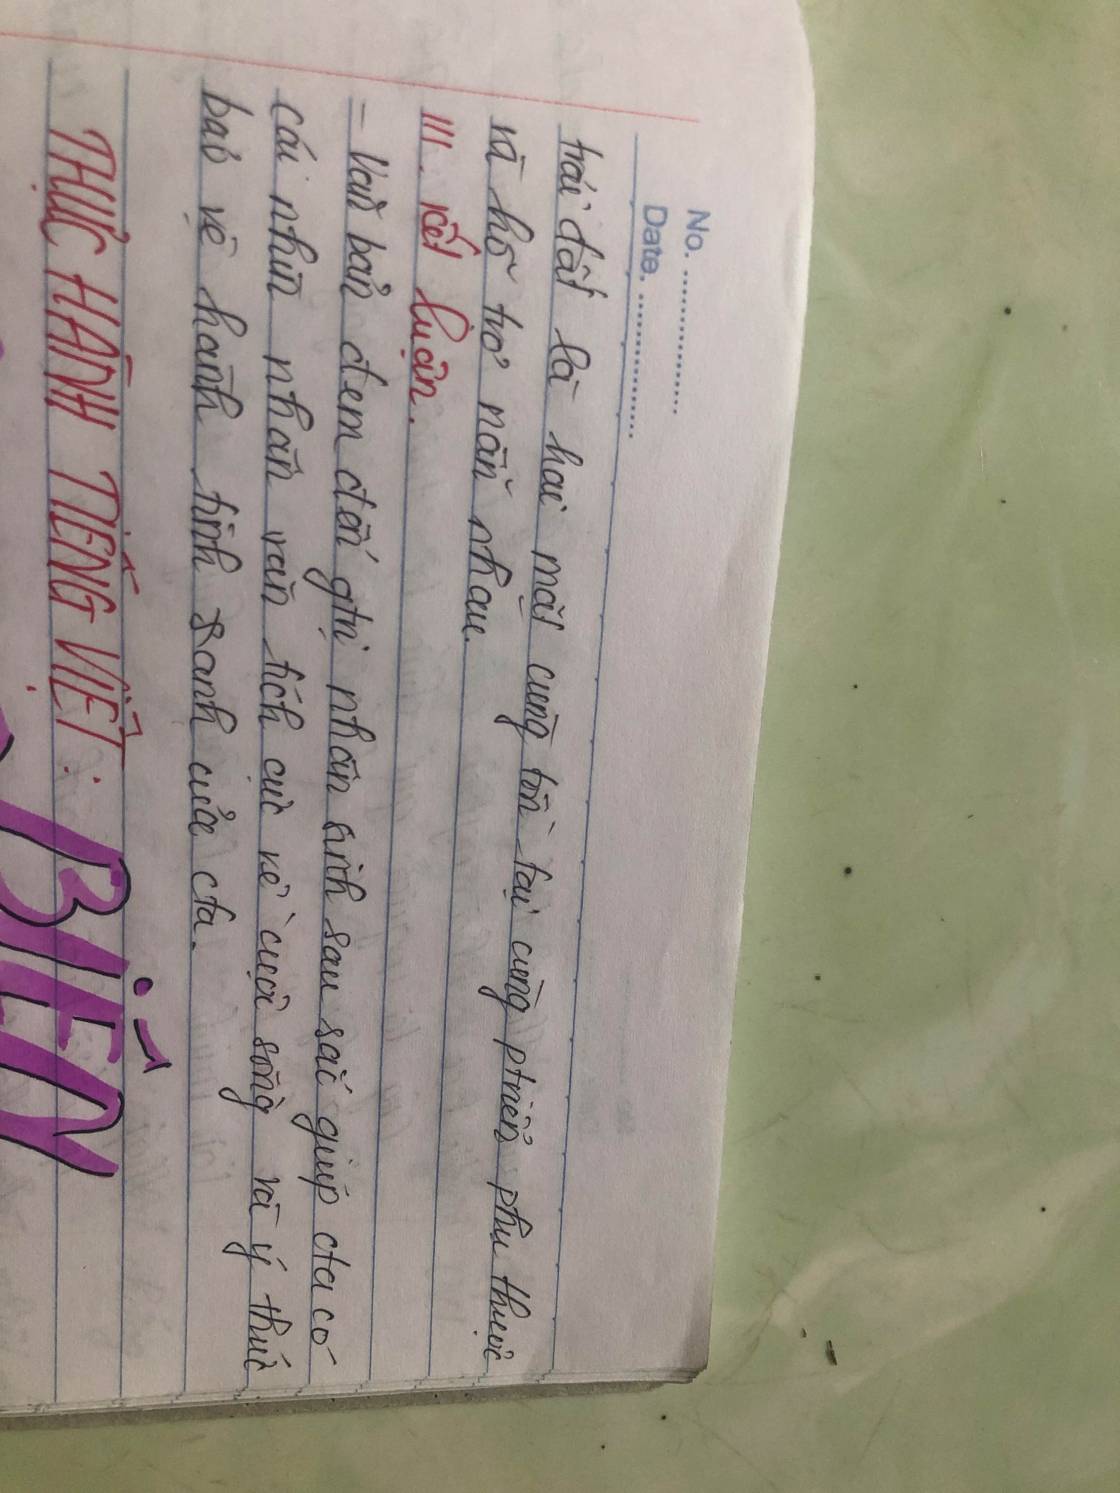 No. ..................
Date. ..................
trái đất là hai mặt cùng tồn tại cùng ptriển phụ thuộc
và hỗ trợ nhau.
III. Kết luận.
- Văn bản đem đến gtrị nhân sinh sau sắc giúp cta có
cái nhìn nhân văn tích cực về cuộc sống và ý thức
bảo vệ hành tinh xanh của cta.
THỰC HÀNH TIẾNG VIỆT: BIỆN